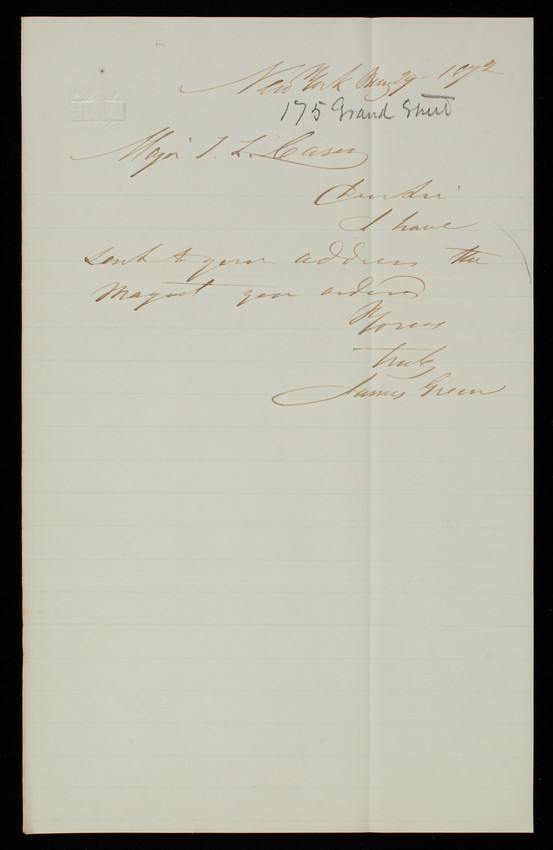 New York Aug 29 - 1872
175 Grand Street
Major T. L. Casey
Dear Sir
I have
sent to your address the
Magnet you ordered
Yours
truly
James Green